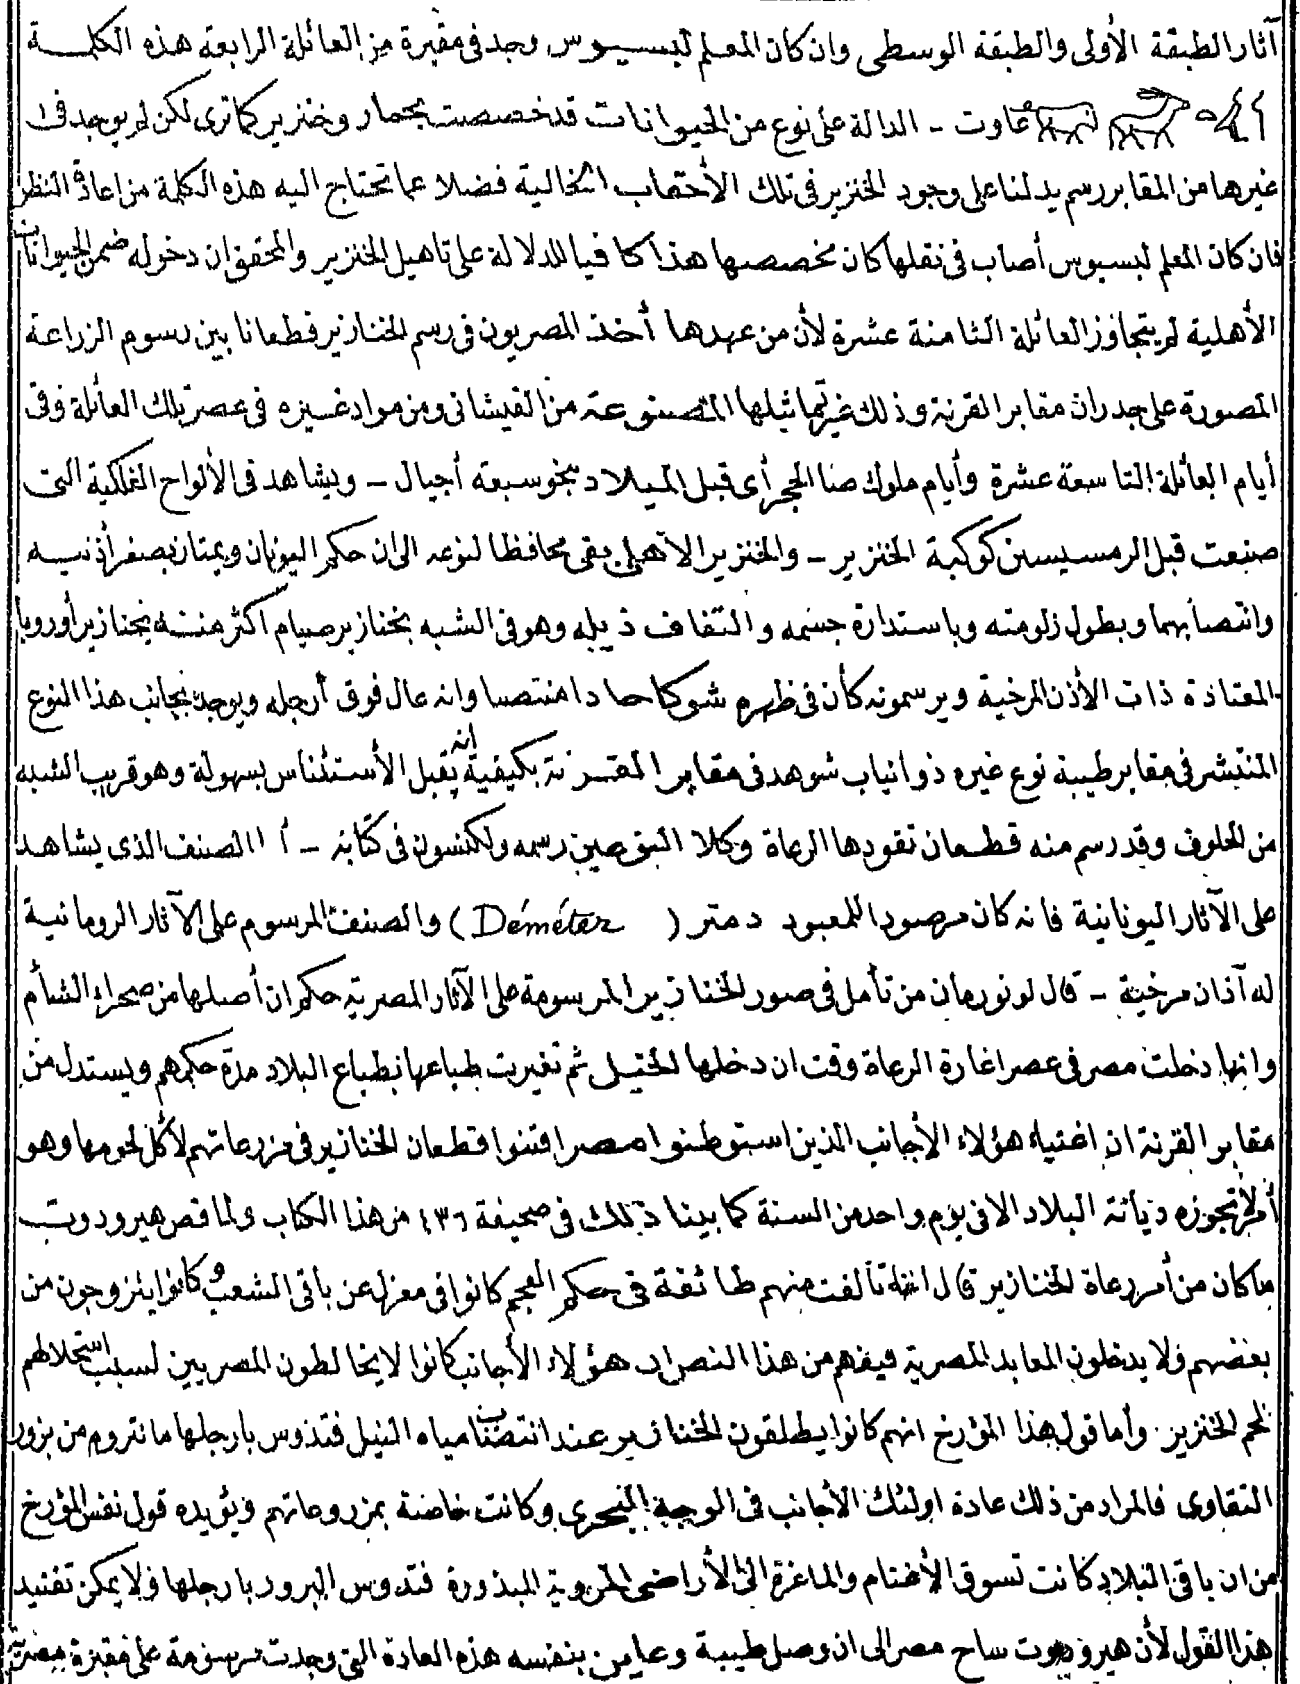 آثار الطبقة الأولى والطبقة الوسطى وان كان المعلم لبسيوس وجد فى مقبرة من العائلة الرابعة هذه الكلمة
عاوت - الدالة على نوع من الحيوانات قد خصصت بحمار وخنزير كما ترى لكن لم يوجد فى
غيرها من المقابر رسم يدلنا على وجود الخنزير فى تلك الأحقاب الخالية فضلا عما تحتاج اليه هذه الكلمة من اعادة النظر
فان كان المعلم لبسيوس أصاب فى نقلها كان مخصصها هذا كافيا للدلالة على تاهيل الخنزير والمحقق ان دخوله ضمن الحيوانات
الأهلية لم يتجاوز العائلة الثامنة عشرة لأن من عهدها أخذ المصريون فى رسم الخنازير قطعانا بين رسوم الزراعة
المصورة على جدران مقابر القرنة وذلك غير تماثيلها المصنوعة من القيشانى ومن مواد غيره فى عصر تلك العائلة وفى
أيام العائلة التاسعة عشرة وأيام ملوك صا الحجر أى قبل الميلاد بنحو سبعة أجيال - ويشاهد فى الألواح الفلكية التى
صنعت قبل الرمسيسين كوكبة الخنزير - والخنزير الأهلى بقى محافظا لنوعه الى ان حكم اليونان ويمتاز بصغر أذنيه
وانتصابهما وبطول زلومته وباستدارة جسمه والتفاف ذيله وهو فى الشبه بخنازير صيام أكثر منه بخنازير أوروبا
المعتادة ذات الأذن المرخية ويرسمونه كأن فى ظهره شوكا حادا منتصبا وانه عال فوق أرجله ويوجد بجانب هذا النوع
المنتشر فى مقابر طيبة نوع غيره ذو انياب شوهد فى مقابر القرنة بكيفية انه يقبل الأستئناس بسهولة وهو قريب الشبه
من الحلوف وقد رسم منه قطعان تقودها الرعاة وكلا النوعين رسمه ولكنسون فى كتابه - أما الصنف الذى يشاهد
على الآثار اليونانية فانه كان مرصودا للمعبود دمتر ( Déméter ) والصنف المرسوم على الآثار الرومانية
له آذان مرخية - قال لونورمان من تأمل فى صور الخنازير المرسومة على الآثار المصرية حكم ان أصلها من صحراء الشأم
وانها دخلت مصر فى عصر اغارة الرعاة وقت ان دخلها الخيل ثم تغيرت طباعها بطباع البلاد مدة حكمهم ويستدل من
مقابر القرنة ان اغنياء هؤلاء الأجانب الذين استوطنوا مصر اقتنوا قطعان الخنازير فى مزرعاتهم لأكل لحومها وهو
أمر لا تجوزه ديانة البلاد الا فى يوم واحد من السنة كما بينا ذلك فى صحيفة ٤٣٦ من هذا الكتاب ولما قص هيرودوت
ما كان من أمر رعاة الخنازير قال انه تألفت منهم طائفة فى حكم العجم كانوا فى معزل عن باقى الشعب وكانوا يتزوجون من
بعضهم ولا يدخلون المعابد المصرية فيفهم من هذا النص ان هؤلاء الأجانب كانوا لا يخالطون المصريين لسبب استحلالهم
لحم الخنزير . وأما قول هذا المؤرخ انهم كانوا يطلقون الخنازير عند انتضاب مياه النيل فتدوس بارجلها ما تتروم من بزور
التقاوى فالمراد من ذلك عادة اولئك الأجانب فى الوجه البحرى وكانت خاصة بمزروعاتهم ويؤيده قول نفس المؤرخ
من ان باقى البلاد كانت تسوق الأغنام والماعزة الى الأراضى المروية المبذورة فتدوس البزور بارجلها ولا يمكن تفنيد
هذا القول لأن هيرودوت ساح مصر الى ان وصل طيبة وعاين بنفسه هذه العادة التى وجدت مرسومة على مقبرة مصرية